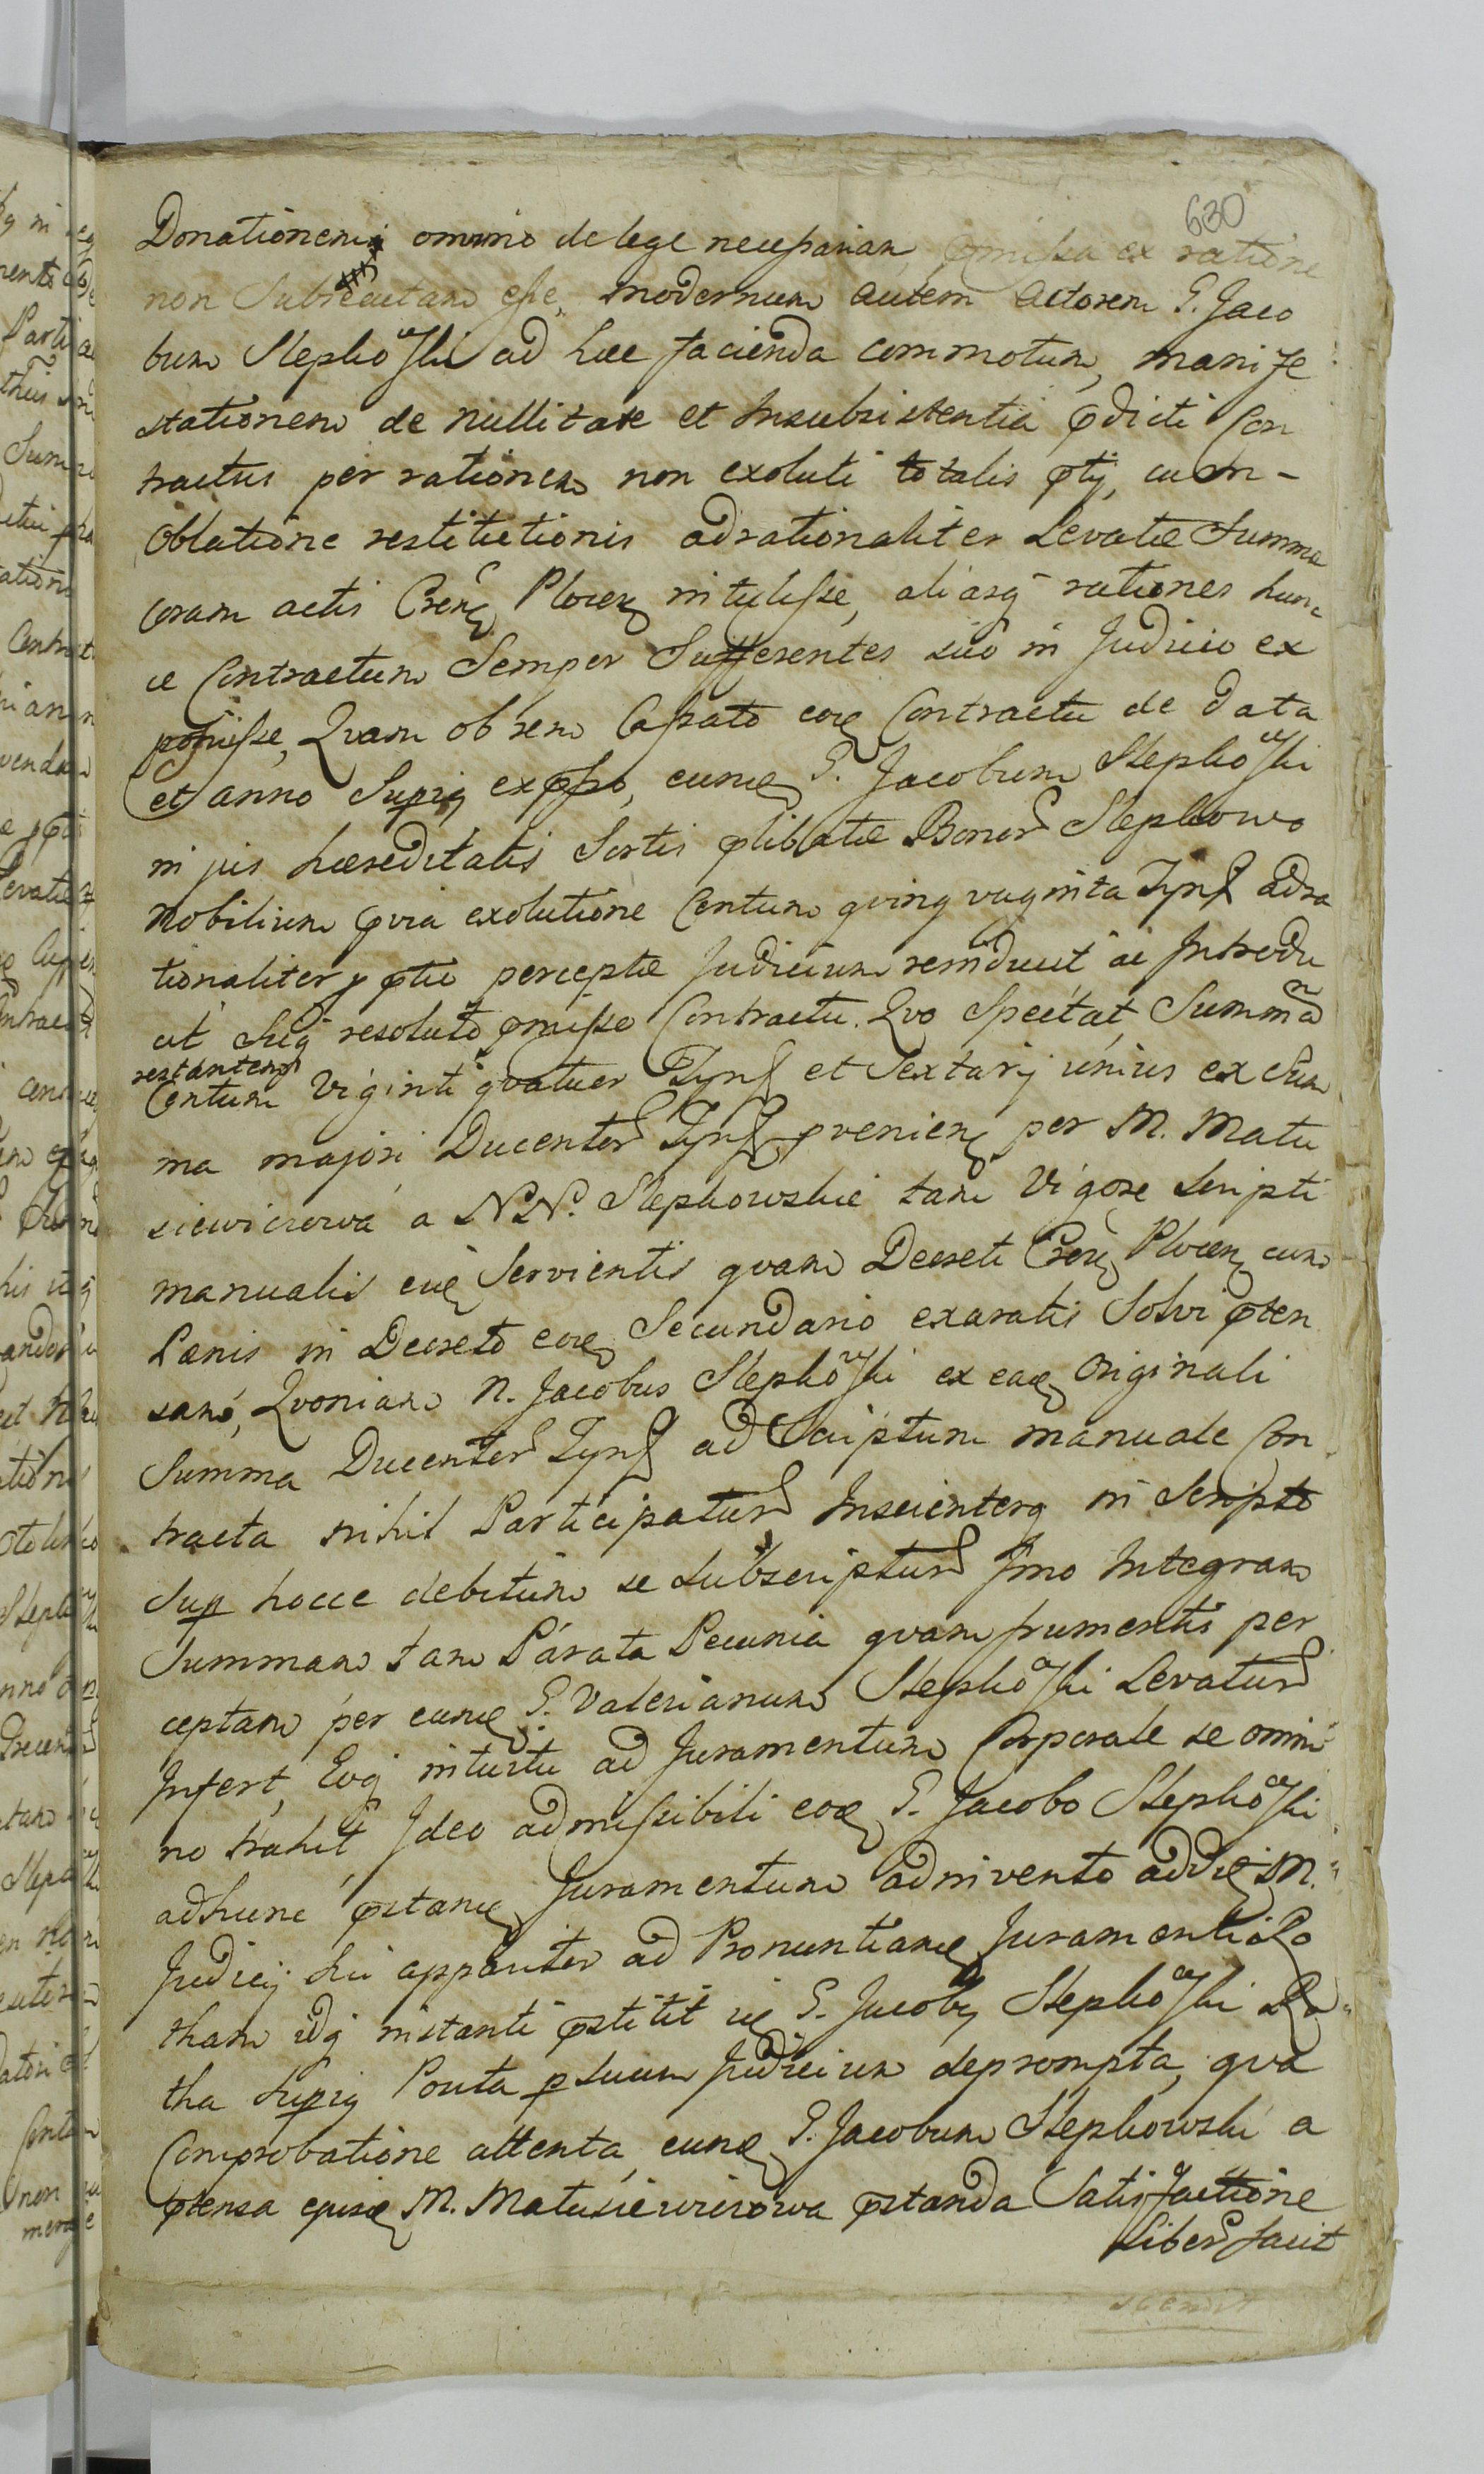 630
Donationem omnino de lege necessariam, omissa ex ratione
non Subsecutam esse, modernum autem Actorem G. Jaco
bum Stępkoski ad hæc facienda commotum, manife
stationem de nullitate et Insubsistentia pdicti Con
tractus per rationem non exoluti totalis ptij, cum
Oblatione restitutionis adrationaliter Levatæ Summæ
coram actis Cren Plocen intulisse, aliasq rationes hunc
ce Contractum Semper Sufferentes suo in Judicio ex
posuisse, Qvam ob rem Cassato eoe Contractu de data
et anno Suprij expsso, eume G. Jacobum Stępkoski
in jus hæreditatis Sortis plibatæ Bonor Stępkowo
Nobilium qvia exolutione Centum qvinqvaginta Tynf adra
tionaliter ptio perceptæ Judicium reinducit ac Introdu
cit Suq resoluto pmisso Contractu. Qvo Spectat Summam
restantem
Centum Viginti qvatuor Tynf et Sextarij unius ex Sum
ma majori Ducentor Tynf pvenien per M. Matu
siewiczowa a NN. Stępkowskie tam Vigore Scripti
manualis eie Servientis qvam Decreti Cren Plocen cum
Pænis in Decreto eoe Secundario exaratis Solvi pten
sam, Qvoniam N. Jacobus Stępkoski ex eae Originali
Summa Ducentor Tynf ad Scriptum manuale Con
tracta nihil Participatur Inscienterq in Scripto
Sup hocce debitum se Subscriptur Imo Integram
Summam tam Parata Pecunia qvam frumentis per
ceptam per eume G. Valerianum Stępkoski Levatur
Infert, Eoq intuitu ad Juramentum Corporale se omni
no trahit Ideo admissibili eoe G. Jacobo Stępkoski
adhunc pstane Juramentum adinvento addie M.
Judicij Sui apparitor ad Pronuntiane Juramenti Ro
tham idq instanti pstitit ie G. Jacoby Stępkoski Ro
tha Suprij Conta p suum Judicium deprompta, qva
Comprobatione attenta, eume G. Jacobum Stępkowski a
ptensa epise M. Matusiewiczowa pstanda Satisfactione
Liber facit